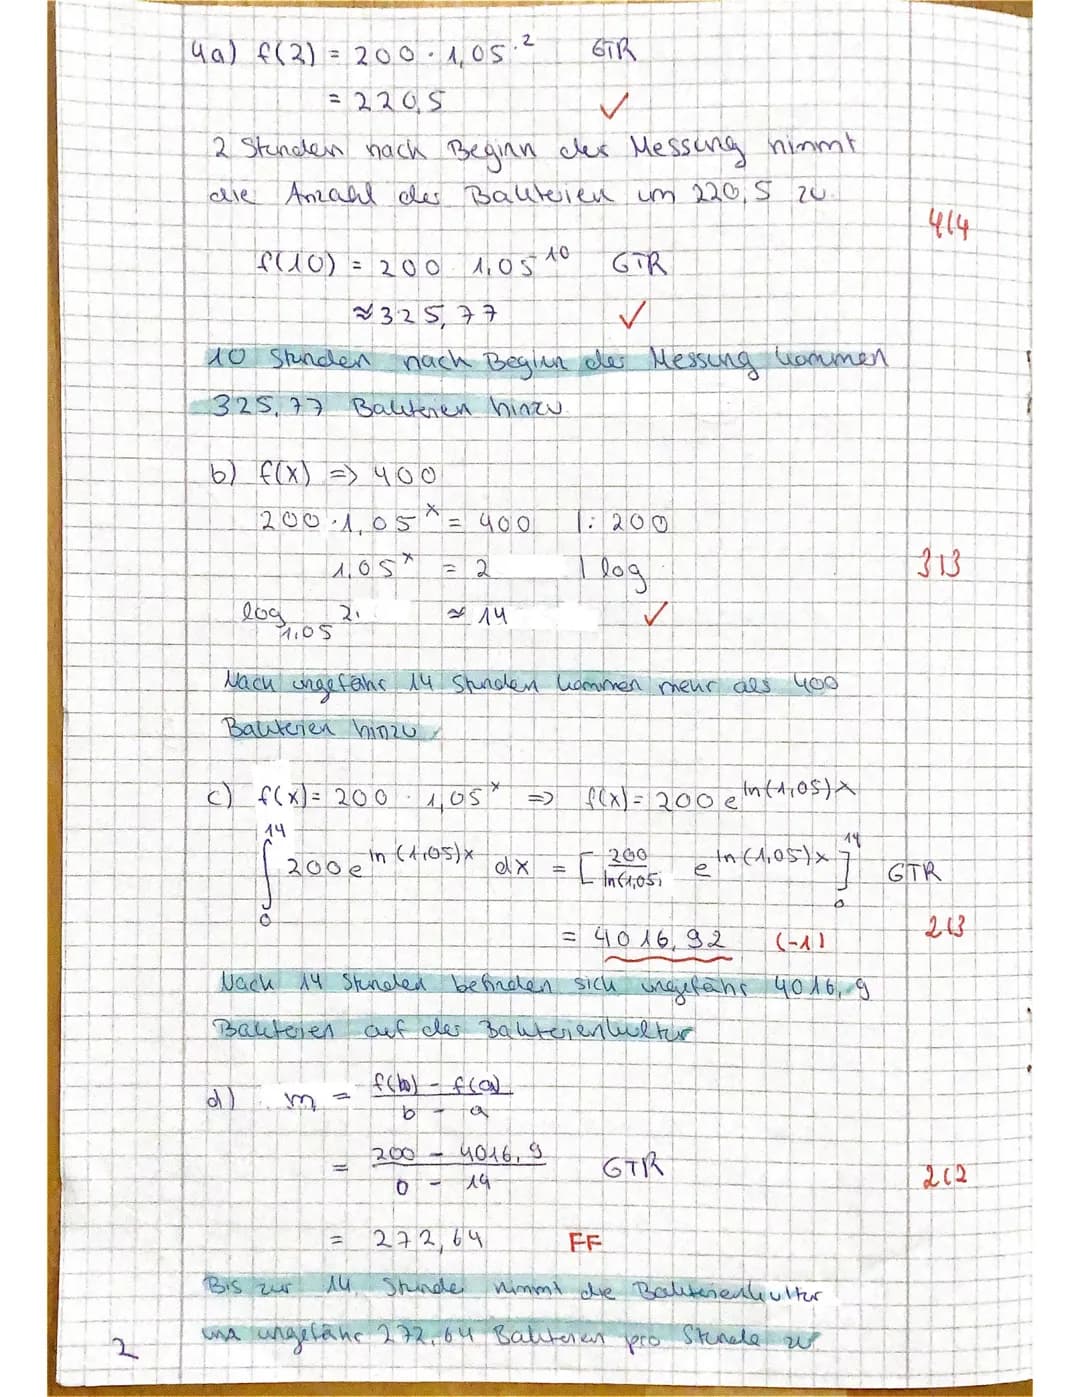 4a) f(2) = 200 · 1,05^2 GTR
= 220,5 ✓
2 Stunden nach Beginn der Messung nimmt
die Anzahl der Bakterien um 220,5 zu.
4/4
f(10) = 200 1,05^10 GTR
≈ 325,77 ✓
10 Stunden nach Beginn der Messung kommen
325,77 Bakterien hinzu
b) f(x) => 400
200 · 1,05^x = 400 | : 200
1,05^x = 2 | log
3/3
log_1,05 2. ≈ 14 ✓
Nach ungefähr 14 Stunden kommen mehr als 400
Bakterien hinzu
c) f(x) = 200 · 1,05^x => f(x) = 200 e^ln(1,05)x
∫_0^14 200 e^ln(1,05)x dx = [ 200/ln(1,05) e^ln(1,05)x ]_0^14 GTR
= 4016,92 (-1)
2/3
Nach 14 Stunden befinden sich ungefähr 4016,9
Bakterien auf der Bakterienkultur
d) m = f(b) - f(a) / b - a
= 200 - 4016,9 / 0 - 14 GTR
2/2
= 272,64 FF
Bis zur 14. Stunde nimmt die Bakterienkultur
ungefähr 272,64 Bakterien pro Stunde zu
2